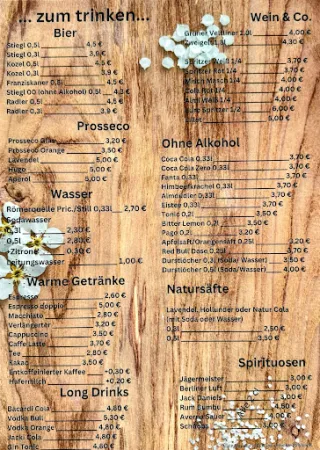 ... zum trinken...
Bier
Stiegl 0,5l 4,5 €
Stiegl 0,3l 3,9 €
Kozel 0,5l 4,5 €
Kozel 0,3l 3,9 €
Franziskaner 0,5l 4,5 €
Stiegl 00 (ohne Alkohol) 0,5l 4,3 €
Radler 0,5l 4,5 €
Radler 0,3l 3,9 €
Prosseco
Prosseco Glas 3,20 €
Prosseco Orange 3,50 €
Lavendel 5,00 €
Hugo 5,00 €
Aperol 5,00 €
Wasser
Römerquelle Pric./Still 0,33l 2,70 €
Sodawasser
0,3l 2,30 €
0,5l 2,80 €
+Zitrone 0,30 €
Leitungswasser 1,00 €
Warme Getränke
Espresso 2,60 €
Espresso doppio 5,00 €
Macchiato 2,80 €
Verlängerter 3,20 €
Cappuccino 3,50 €
Caffe Latte 3,70 €
Tee 2,80 €
Kakao 3,50 €
Entkoffeinierter Kaffee +0,30 €
Hafermilch +0,20 €
Long Drinks
Bacardi Cola 4,80 €
Vodka Bull 5,30 €
Vodka Orange 4,80 €
Jacki Cola 4,80 €
Gin Tonic 4,80 €
Wein & Co.
Grüner Veltliner 1,0l 4,00 €
Zweigelt 4,30 €
Spritzer Weiß 1/4 3,70 €
Spritzer Rot 1/4 3,70 €
1/4 4,00 €
Cola Rot 1/4 4,00 €
1/4 4,00 €
Spritzer 1/2 6,00 €
5,00 €
Ohne Alkohol
Coca Cola 0,33l 3,70 €
Coca Cola Zero 0,33l 3,70 €
Fanta 0,33l 3,70 €
Himbeerkracherl 0,33l 3,70 €
Almdudler 0,33l 3,70 €
Eistee 0,33l 3,70 €
Tonic 0,2l 3,50 €
Bitter Lemon 0,2l 3,50 €
Pago 0,2l 3,20 €
Apfelsaft/Orangensaft 0,25l 1,20 €
Red Bull Dose 3,70 €
Durstlöcher 0,3l (Soda/ Wasser) 3,50 €
Durstlöcher 0,5l (Soda/Wasser) 4,00 €
Natursäfte
Lavendel, Hollunder oder Natur Cola
(mit Soda oder Wasser)
0,3l 2,50 €
0,5l 3,50 €
Spirituosen
Jägermeister 3,00 €
Berliner Luft 3,00 €
Jack Daniels 3,00 €
Rum Bumbu 4,50 €
Averna Sauer 4,00 €
4,00 €